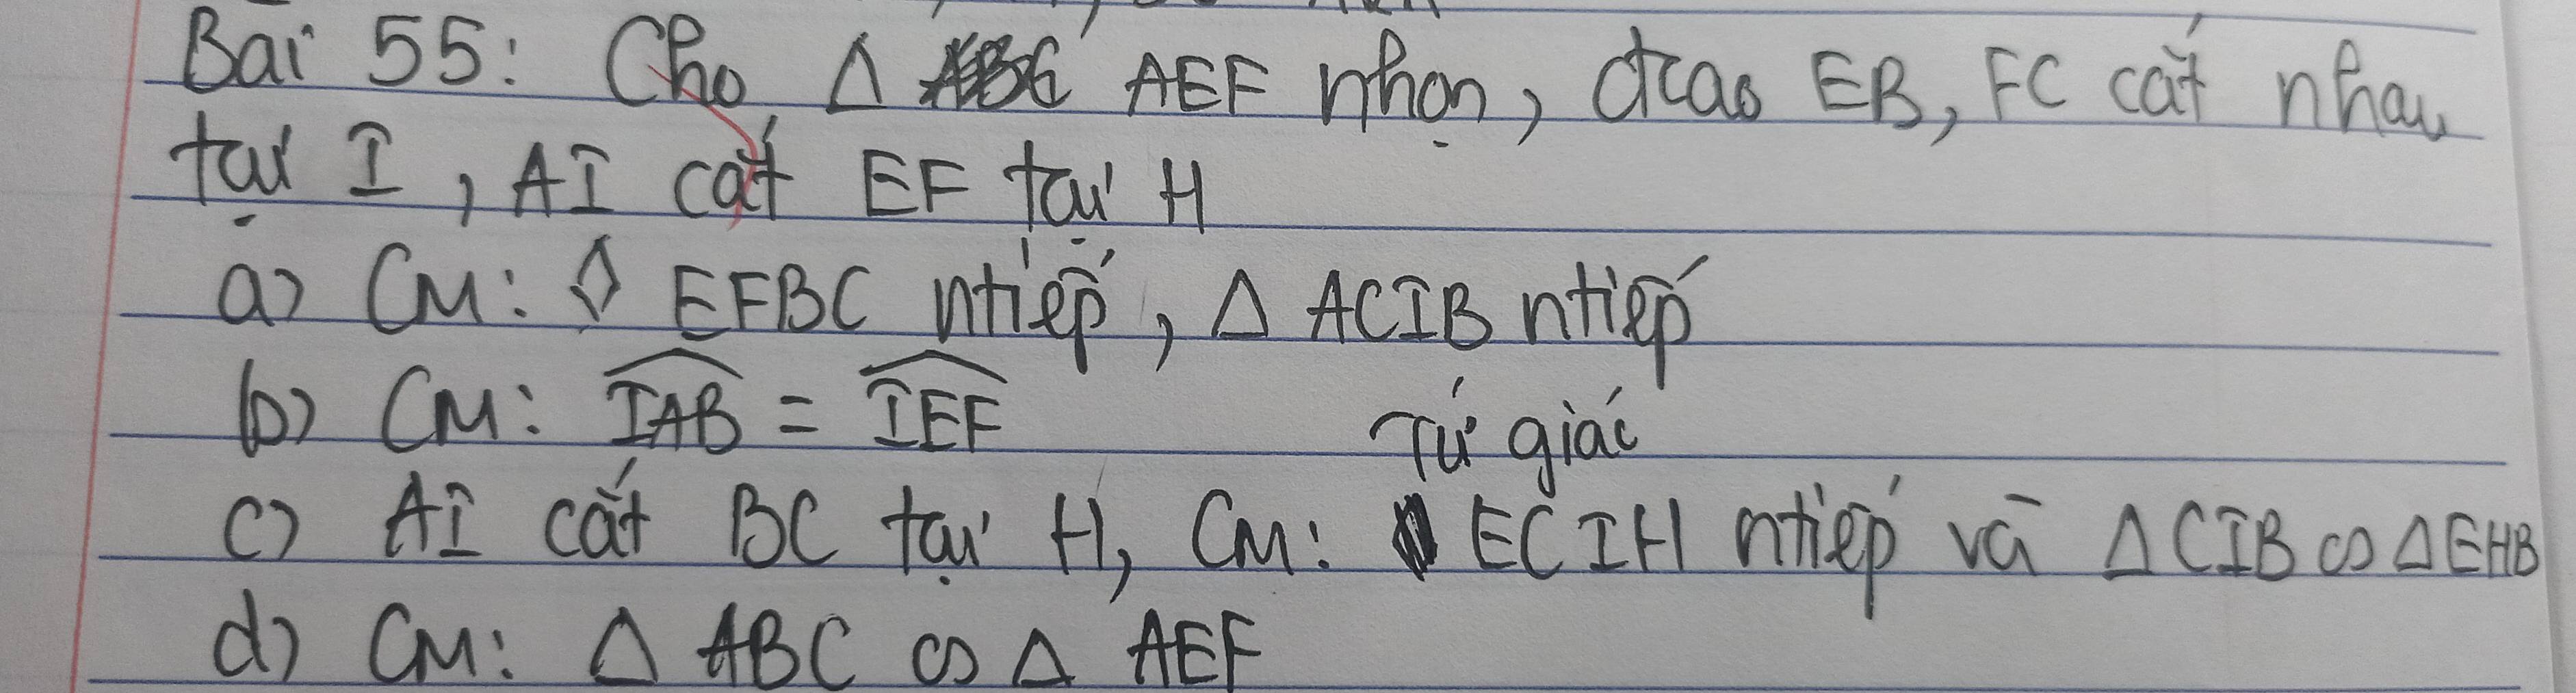 Bài 55: Cho Δ AEF nhọn, đcao EB, FC cắt nhau
tại I, AI cắt EF tại H
a) CM: ◊ EFBC ntiếp, Δ ACIB ntiếp
b) CM: \widehat{IAB} = \widehat{IEF}
Tứ giác
c) AI cắt BC tại H, CM: ECIH ntiếp và Δ CIB ∽ Δ EHB
d) CM: Δ ABC ∽ Δ AEF